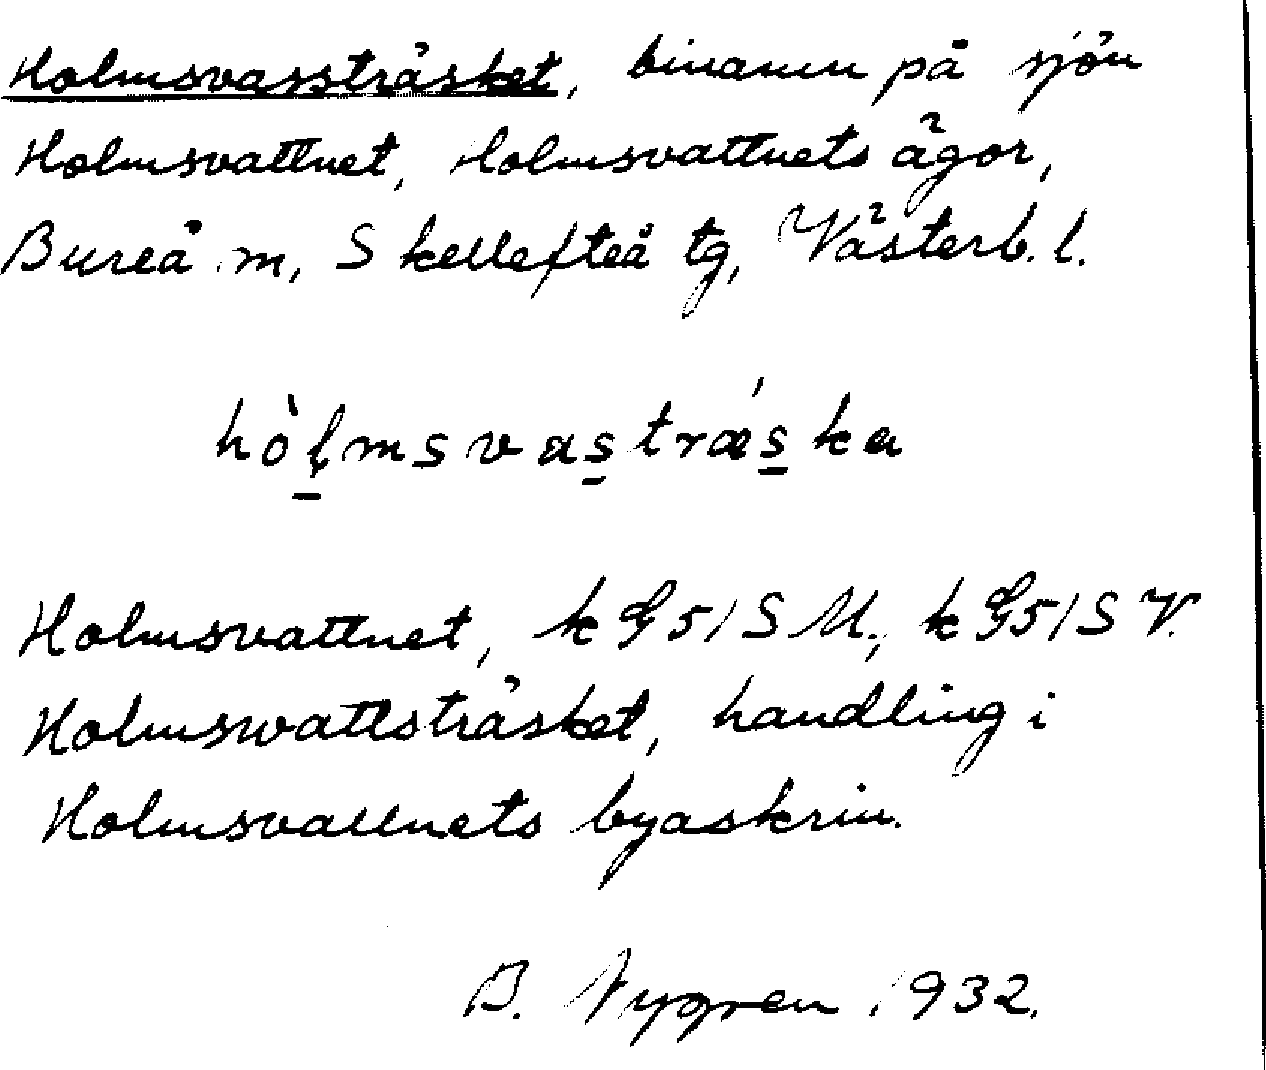 Holmsvassträsket, binamn på sjön
Holmsvattnet, Holmsvattnets ägor,
Bureå m, Skellefteå tg, Västerb. l.
hòl̯msvas̱træ´s̱ka
Holmsvattnet, k G51 S M.; k G51 S V.
Holmswattsträsket, handling i
Holmsvattnets byaskrin.
B. Nygren 1932.